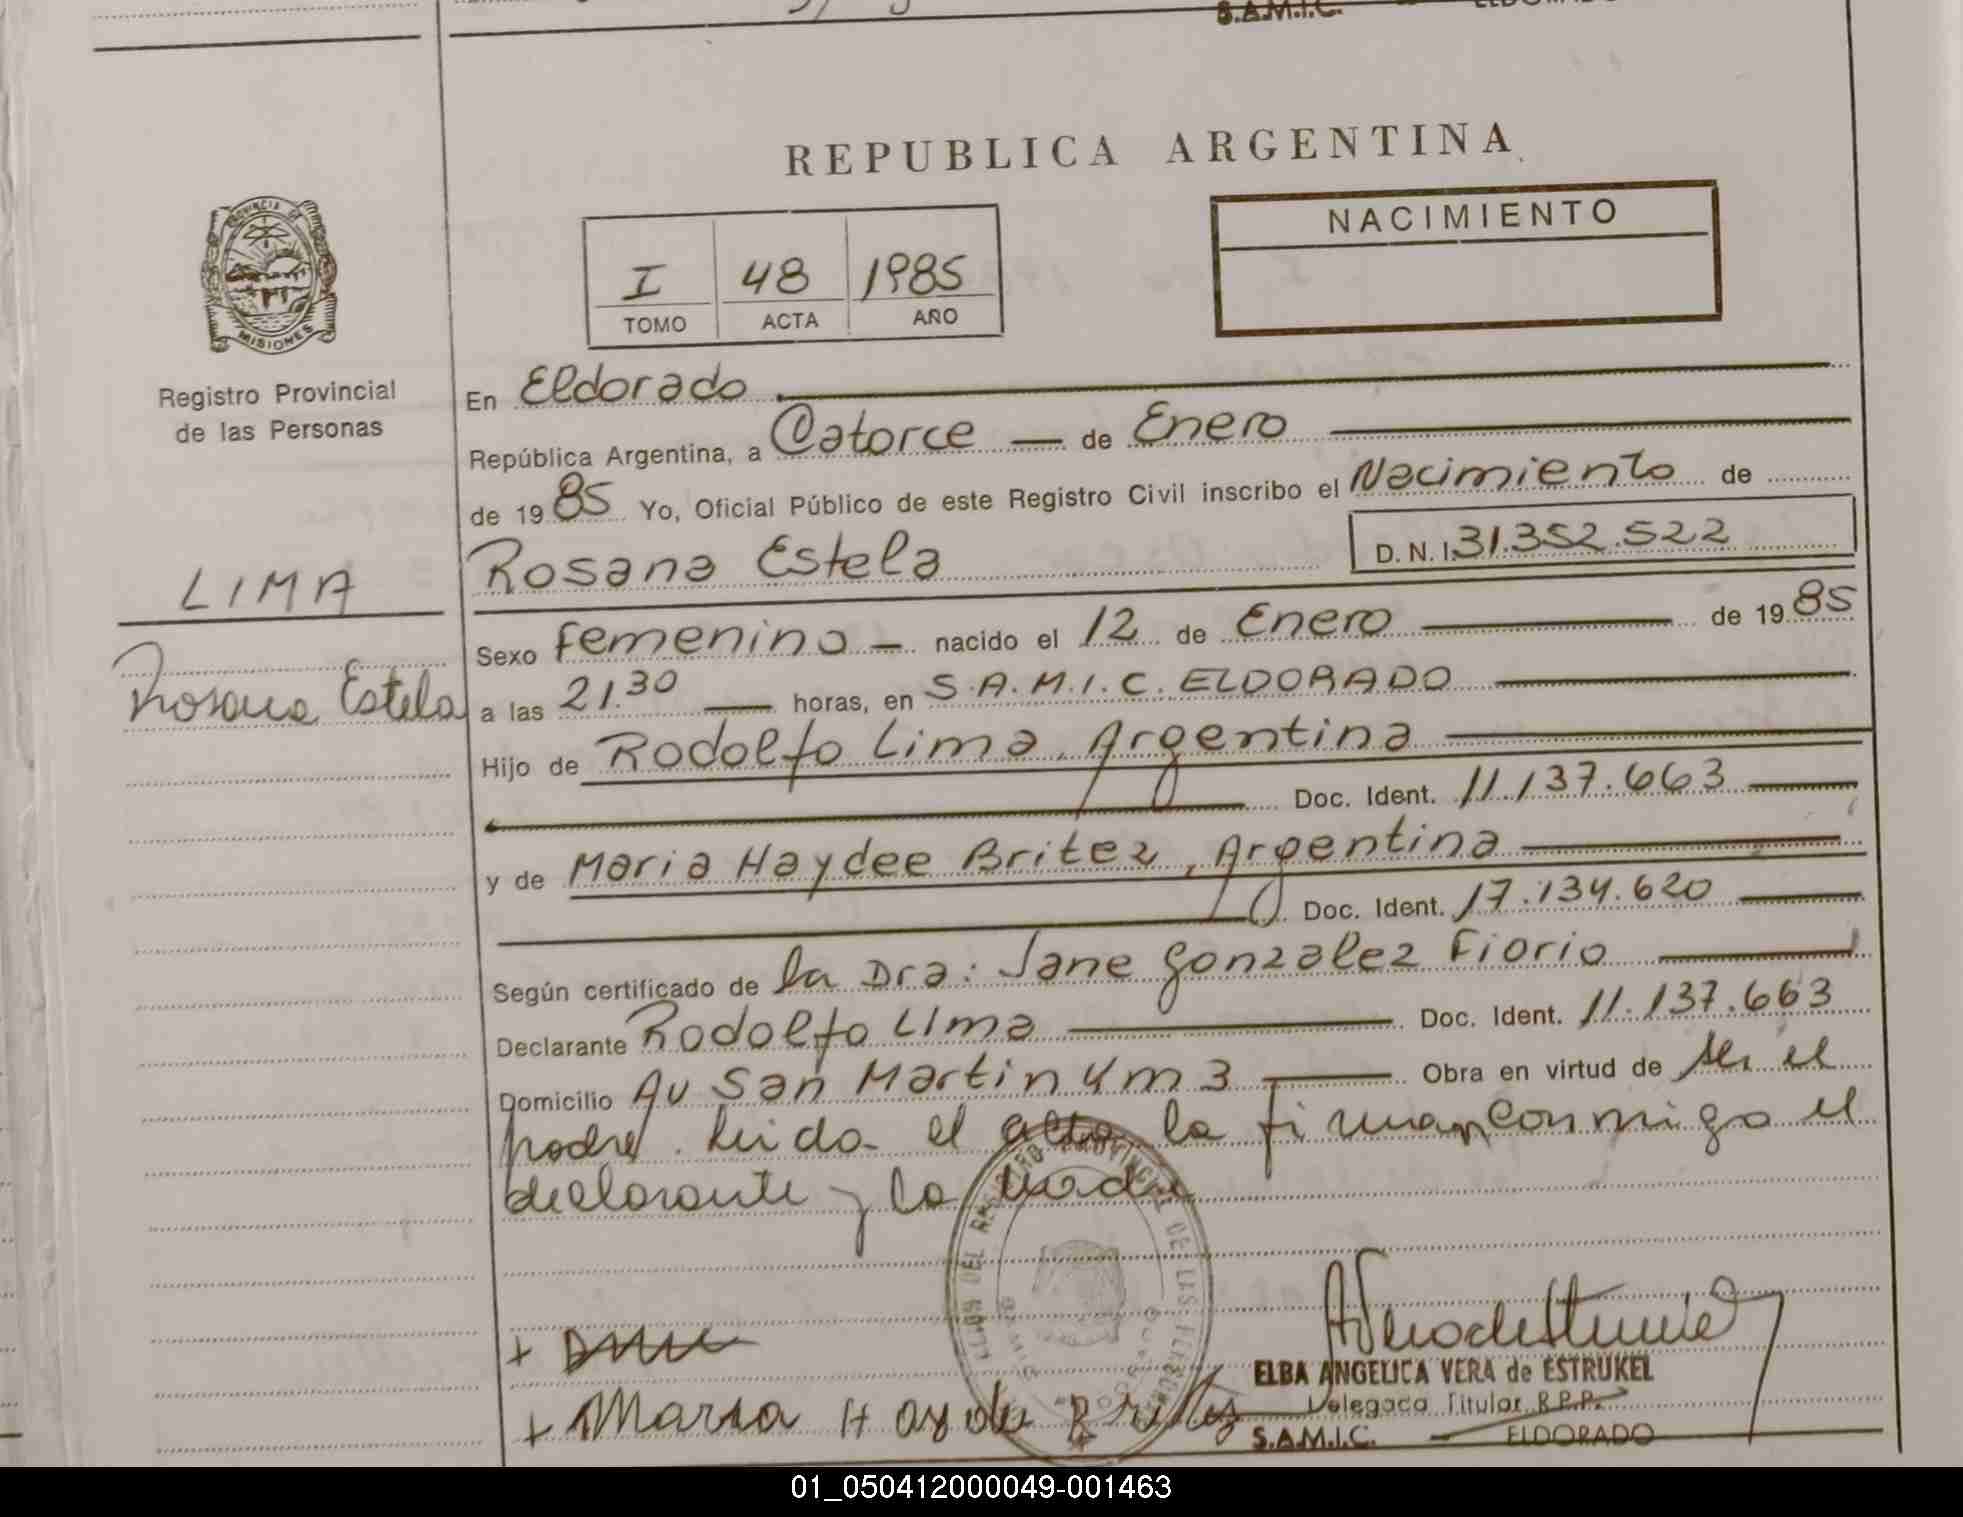 S.A.M.I.C.
REPUBLICA ARGENTINA
PROVINCIA DE
MISIONES
Registro Provincial
de las Personas
I 48 1985
TOMO ACTA AÑO
NACIMIENTO
En Eldorado
República Argentina, a Catorce — de Enero
de 1985 Yo, Oficial Público de este Registro Civil inscribo el Nacimiento de
Rosana Estela D. N. I. 31.352.522
LIMA
Rosana Estela
Sexo femenino — nacido el 12 de Enero de 1985
a las 21.30 — horas, en S.A.M.I.C. ELDORADO
Hijo de Rodolfo Lima, Argentina
Doc. Ident. 11.137.663
y de Maria Haydee Britez, Argentina
Doc. Ident. 17.134.620
Según certificado de la Dra: Jane Gonzalez Fiorio
Declarante Rodolfo Lima Doc. Ident. 11.137.663
Domicilio Av San Martin Km 3 — Obra en virtud de ser el
padre. Leida el acta la firman conmigo el
declarante y la madre
DEL REGISTRO PROVINCIAL DE LAS PERSONAS
+
+ Maria Haydee Britez
ELBA ANGELICA VERA de ESTRUKEL
Delegada Titular R.P.P.
S.A.M.I.C. — ELDORADO
01_050412000049-001463